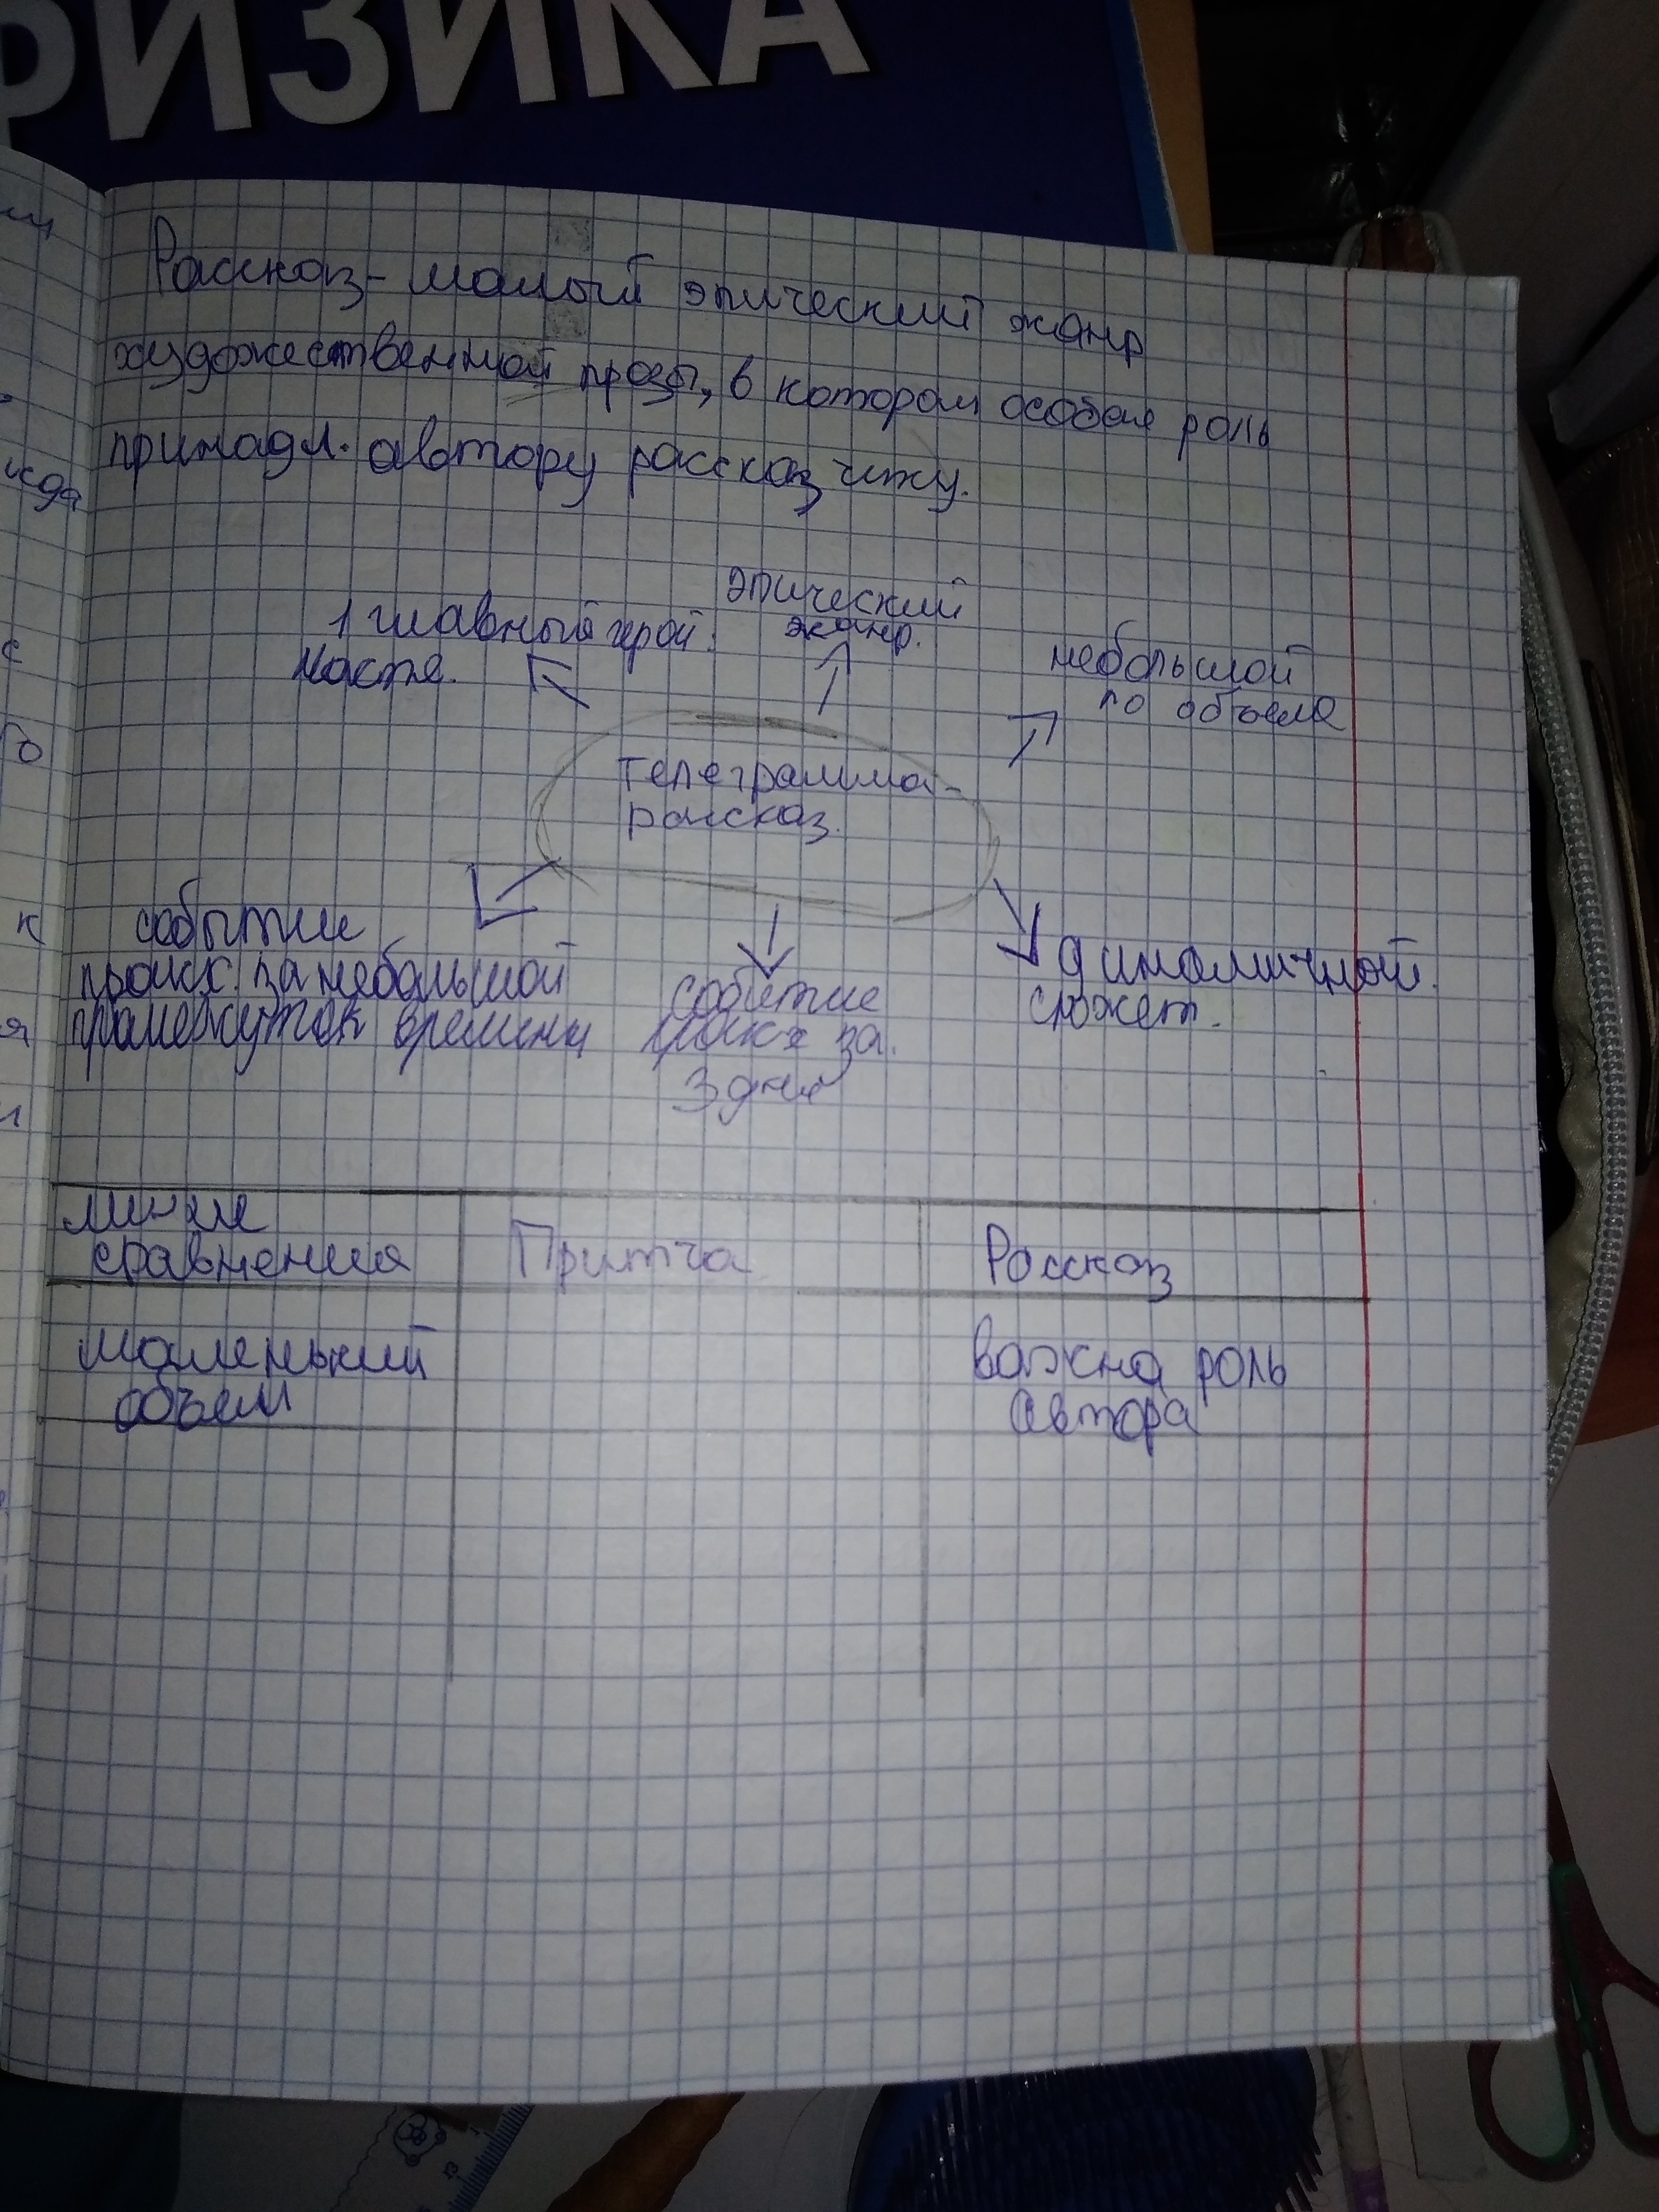 ФИЗИКА
Рассказ - малый эпический жанр
художественной прозы, в котором особая роль
принадл. автору рассказчику.
1 главный герой.
Настя.
эпический
жанр.
небольшой
по объеме
Телеграмма-
рассказ.
событие
происх. за небольшой
промежуток времени
событие
происх за.
3 дня
динамичной.
сюжет.
линие
сравнения
Притча
Рассказ
маленький
объем
важна роль
автора